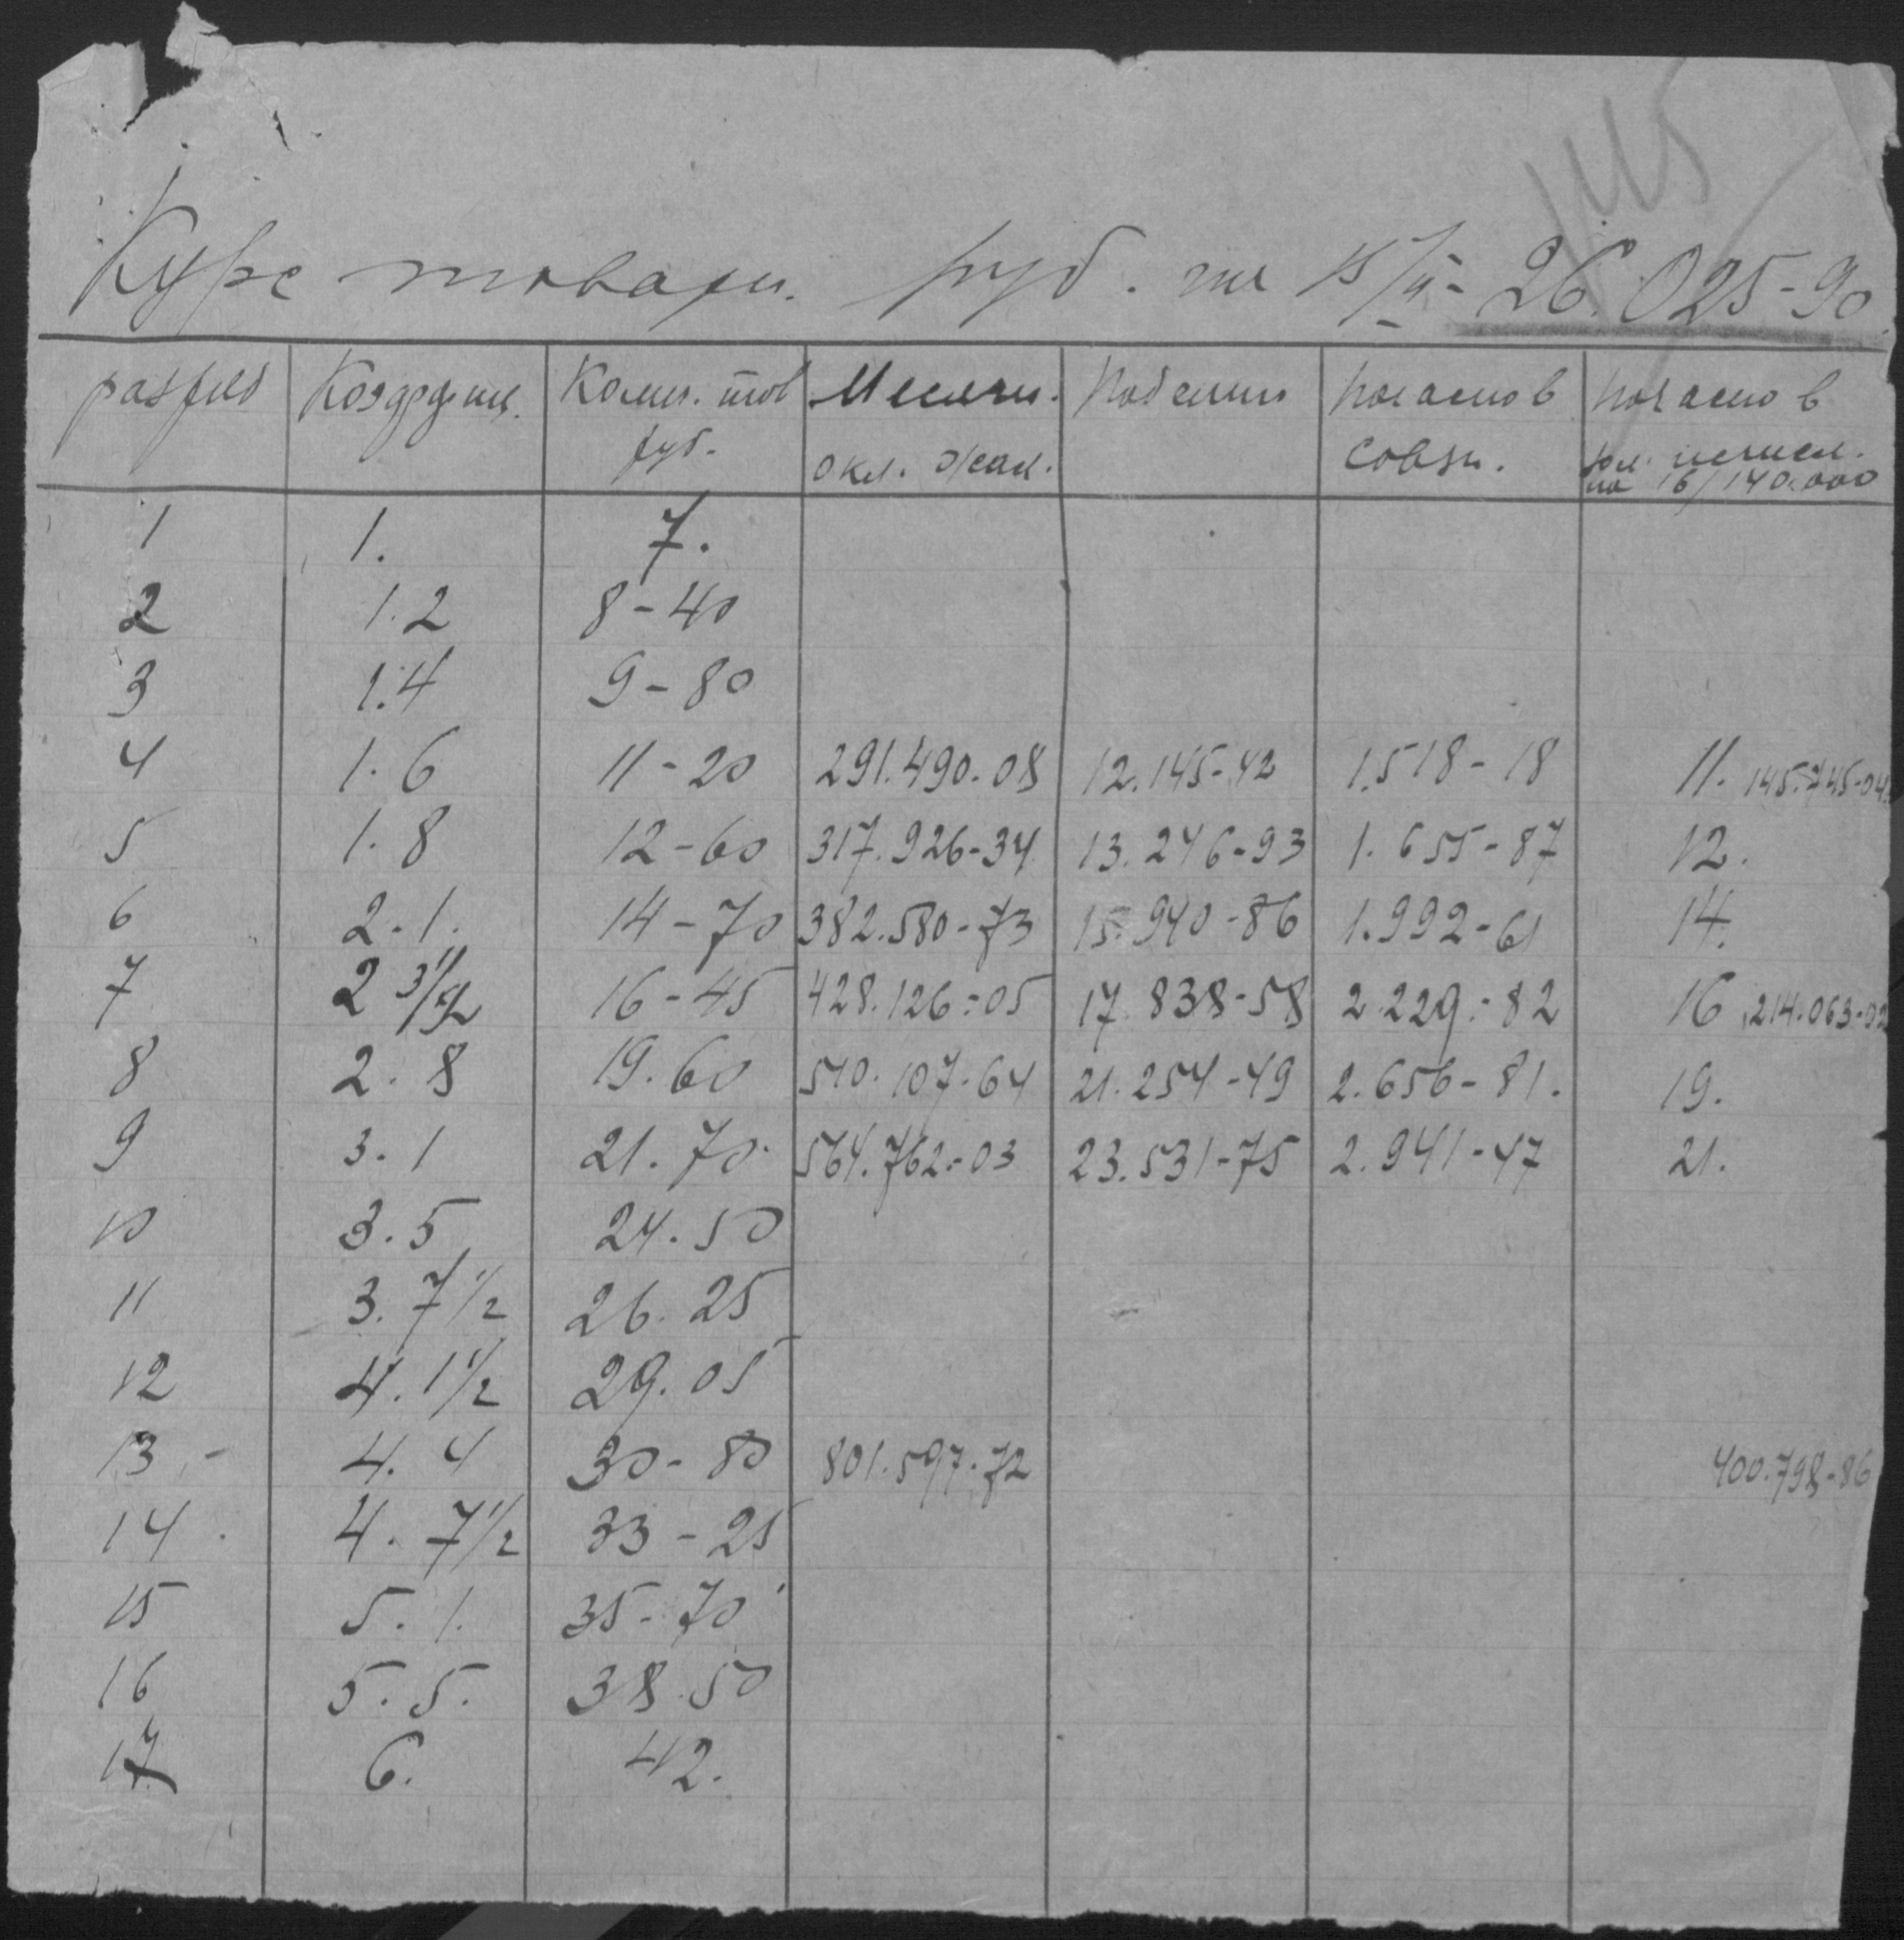 1115
Курс товарн. руб. на 15/II - 26.025-90
разряд Коэффиц. Колич. тов руб. Месячн. окл. жал. Поденно Почасно в совзн. Почасно в
140.000
1 1. 7.
2 1.2 8-40
3 1.4 9-80
4 1.6 11-20 291.490.08 12.145-42 1.518-18 11. 145.745-04
5 1.8 12-60 317.926-34 13.246-93 1.655-87 12.
6 2.1. 14-70 382.580-73 15.940-86 1.992-61 14.
7 2 3 1/2 16-45 428.126-05 17.838-58 2.229-82 16 214.063-02
8 2.8 19.60 510.107-64 21.254-49 2.656-81. 19.
9 3.1 21.70 564.762-03 23.531-75 2.941-47 21.
10 3.5 24.50
11 3.7 1/2 26.25
12 4.1 1/2 29.05
13 - 4.4 30-80 801.597-72 400.798-86
14. 4.7 1/2 33-25
15 5.1. 35-70
16 5.5. 38.50
17 6. 42.